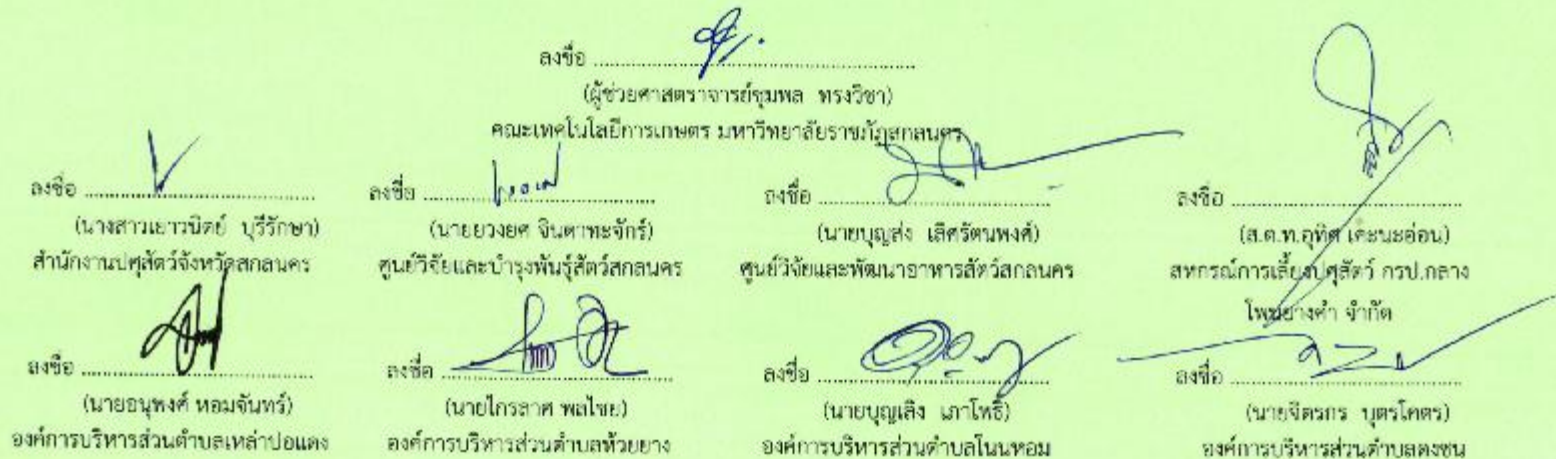 ลงชื่อ
(ผู้ช่วยศาสตราจารย์ชุมพล ทรงวิชา)
คณะเทคโนโลยีการเกษตร มหาวิทยาลัยราชภัฏสกลนคร
ลงชื่อ
(นางสาวเยาวนิตย์ บุรีรักษา)
สำนักงานปศุสัตว์จังหวัดสกลนคร
ลงชื่อ
(นายยวงยศ จินดาทะจักร์)
ศูนย์วิจัยและบำรุงพันธุ์สัตว์สกลนคร
ลงชื่อ
(นายบุญส่ง เลิศรัตนพงศ์)
ศูนย์วิจัยและพัฒนาอาหารสัตว์สกลนคร
ลงชื่อ
(ส.ต.ท.อุทิศ เคะนะอ่อน)
สหกรณ์การเลี้ยงปศุสัตว์ กรป.กลาง
โพนยางคำ จำกัด
ลงชื่อ
(นายอนุพงศ์ หอมจันทร์)
องค์การบริหารส่วนตำบลเหล่าปอแดง
ลงชื่อ
(นายไกรลาศ พลไชย)
องค์การบริหารส่วนตำบลห้วยยาง
ลงชื่อ
(นายบุญเลิง เภาโพธิ์)
องค์การบริหารส่วนตำบลโนนหอม
ลงชื่อ
(นายจิตรกร บุตรโคตร)
องค์การบริหารส่วนตำบลดงชน